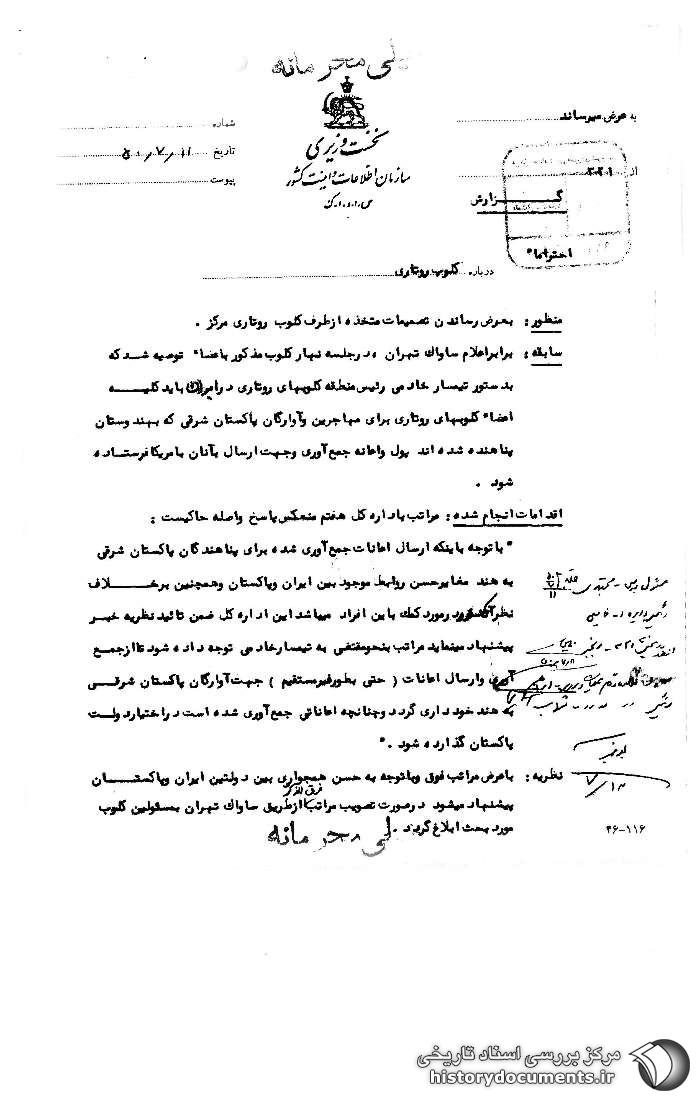 خیلی محرمانه
به عرض میرساند
شماره
نخست وزیری
تاریخ ۵۰/۷/۱۱
سازمان اطلاعات و امنیت کشور
پیوست
از ۳۲۱
س.ا.و.ا.ک
گـــزارش
احتراما"
درباره کلوب روتاری
منظور : بعرض رساندن تصمیمات متخذه از طرف کلوب روتاری مرکز .
سابقه : برابر اعلام ساواک تهران در جلسه نهار کلوب مذکور باعضاء توصیه شد که
بدستور تیمسار خادمی رئیس منطقه کلوبهای روتاری در ایران باید کلیـــه
اعضاء کلوبهای روتاری برای مهاجرین وآوارگان پاکستان شرقی که بهندوستان
پناهنده شده اند پول واعانه جمع آوری وجهت ارسال بآنان بامریکا فرستاده
شود .
اقدامات انجام شده : مراتب باداره کل هفتم منعکس پاسخ واصله حاکیست :
" با توجه باینکه ارسال اعانات جمع آوری شده برای پناهندگان پاکستان شرقی
به هند مغایر حسن روابط موجود بین ایران وپاکستان وهمچنین برخـــلاف
نظر در مورد کمک باین افراد میباشد این اداره کل ضمن تائید نظریه خبر
پیشنهاد مینماید مراتب بنحو مقتضی به تیمسار خادمی توجه داده شود تا از جمع
آوری وارسال اعانات ( حتی بطور غیر مستقیم ) جهت آوارگان پاکستان شرقـی
به هند خودداری گردد وچنانچه اعاناتی جمع آوری شده است در اختیار دولت
پاکستان گذارده شود . "
نظریه : باعرض مراتب فوق وباتوجه به حسن همجواری بین دولتین ایران وپاکستـــان
پیشنهاد میشود در صورت تصویب مراتب فوق الذکر از طریق ساواک تهران بمسئولین کلوب
مورد بحث ابلاغ گردد .
۳۶-۱۱۶
۷/۱۰
خیلی محرمانه
مرکز بررسی اسناد تاریخی
historydocuments.ir